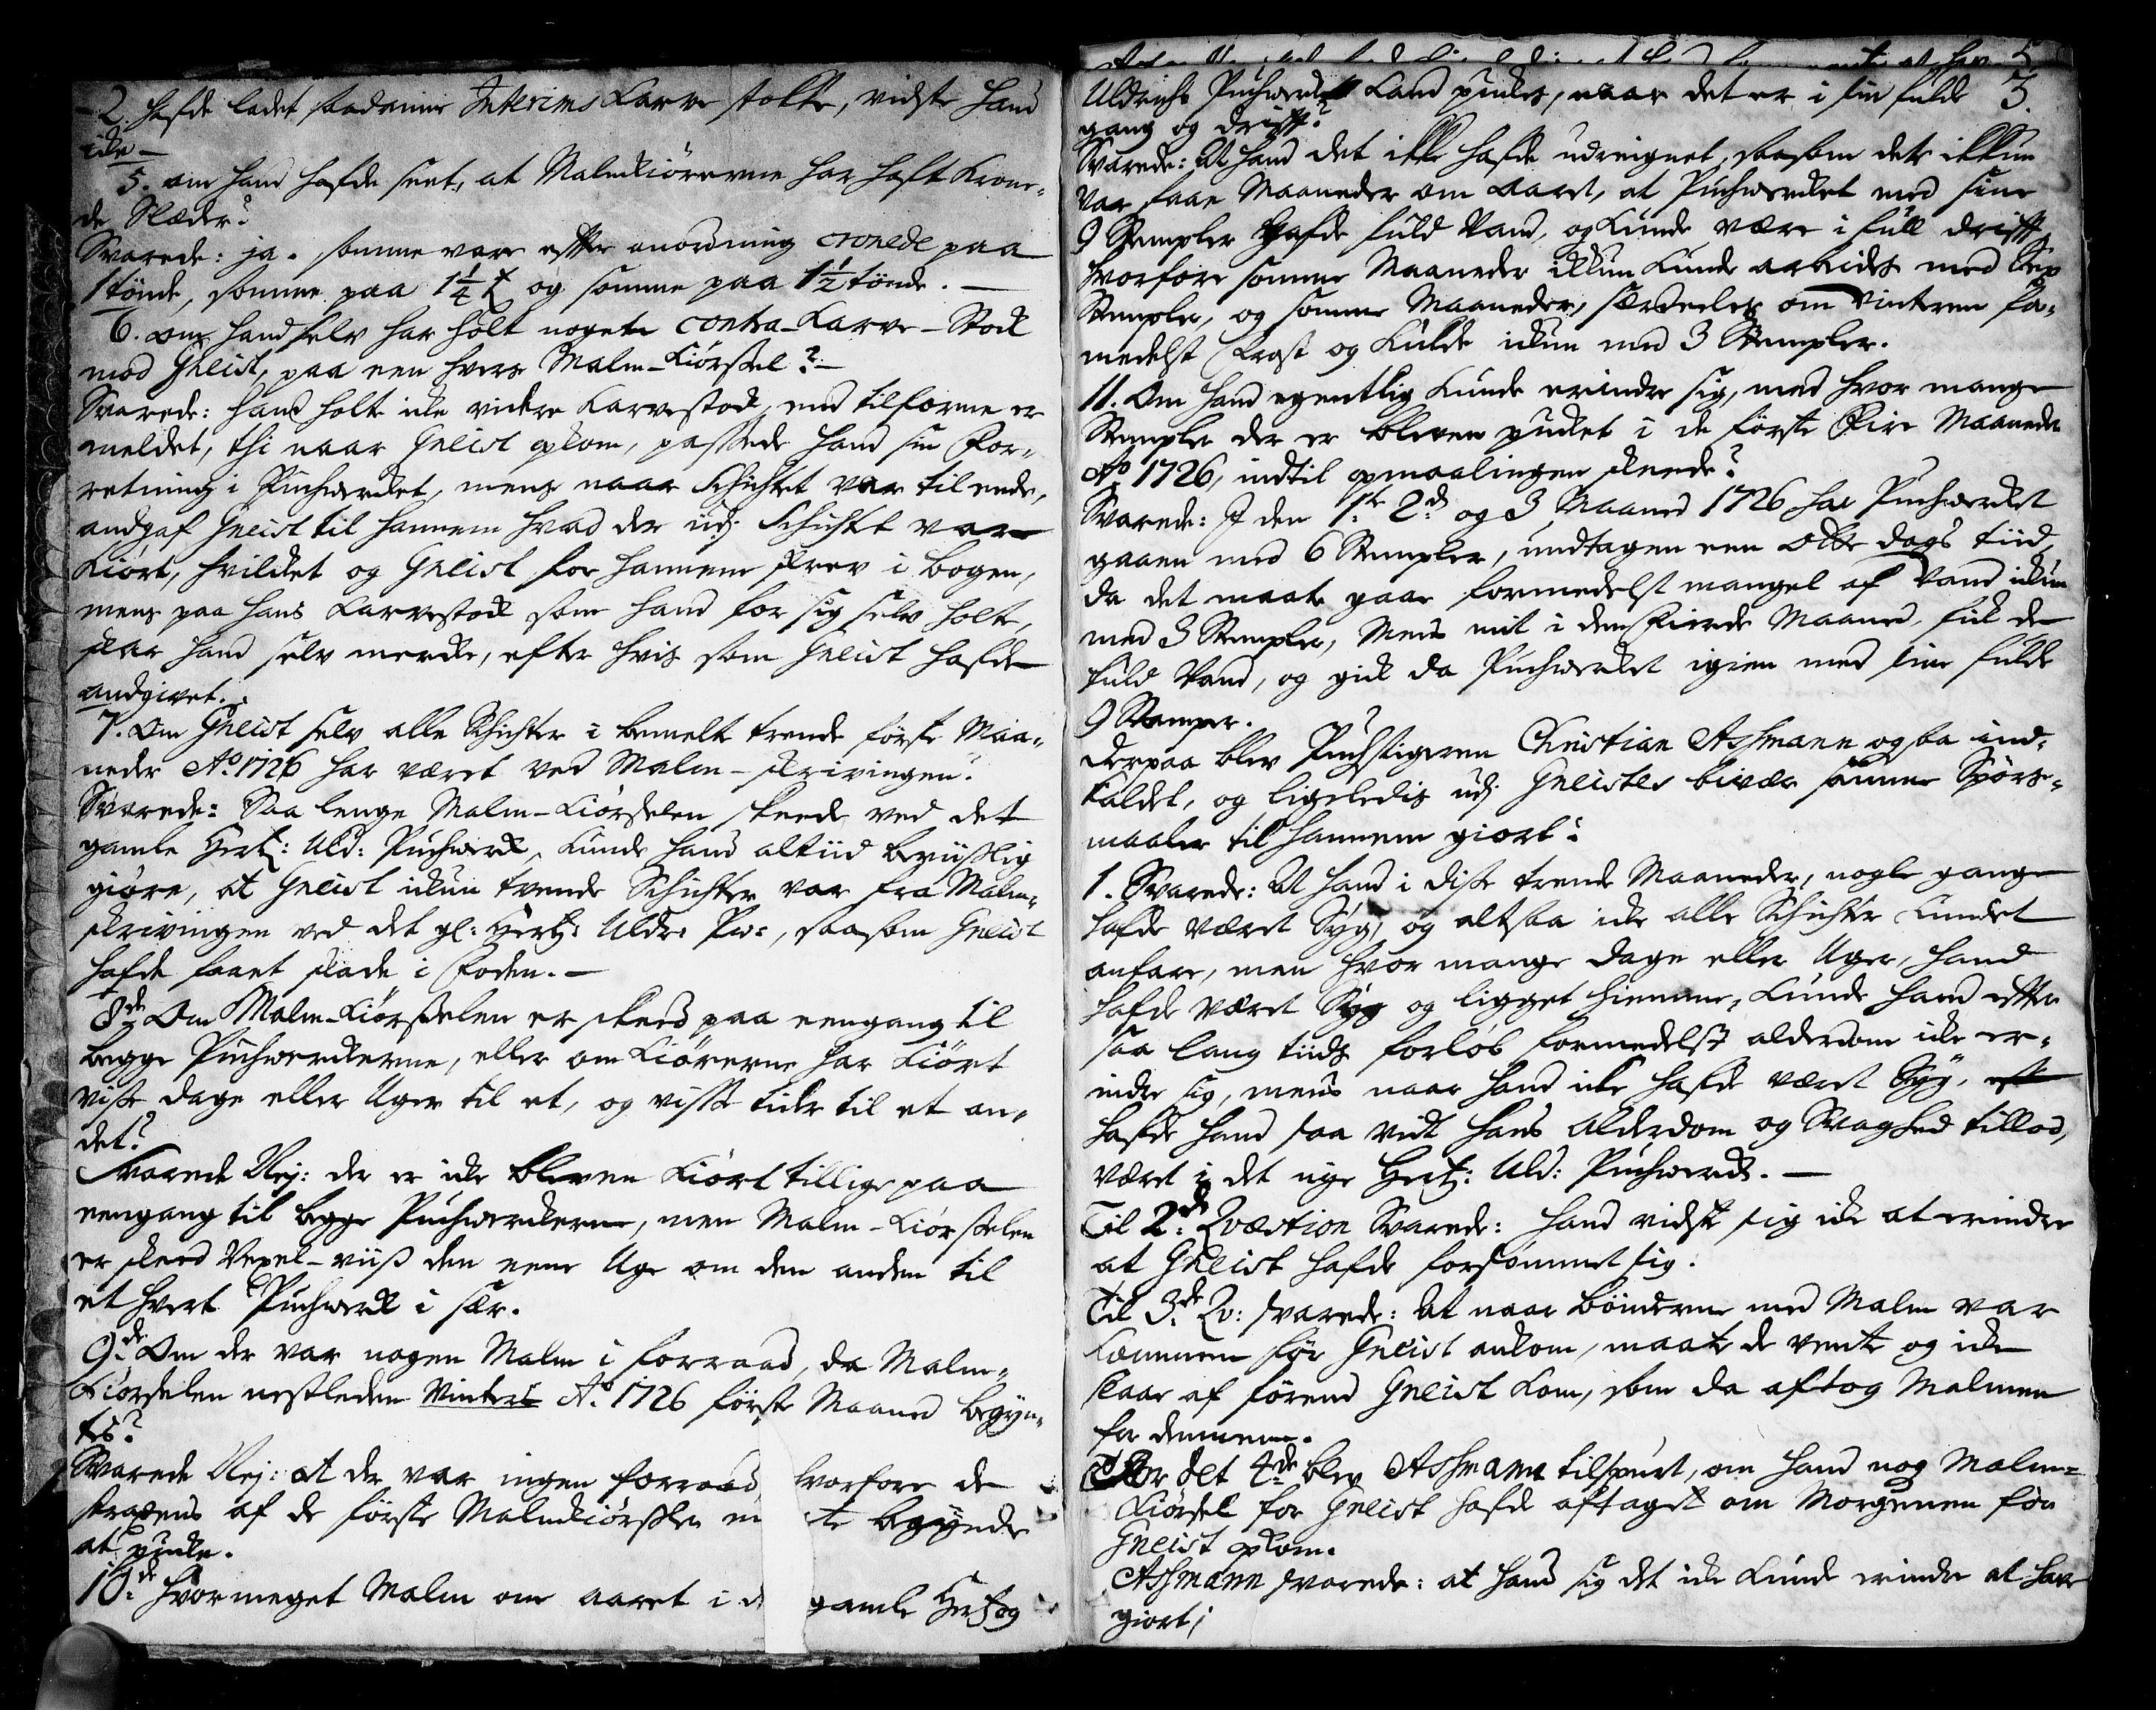 2. hafde ladet saadanne Interims Karve stokke, vidste hand
icke —
5. om hand hafde seet, at Malmkiörerne har haft Krone-
de Slæder?
Svarede: ja. somme vare efter anordning cronede paa
1 tönde, somme paa 1¼ t og somme paa 1½ tönde. —
6. om hand selv har holt nogen contra-Karve-Stock
mod Gneist, paa een hver Malm-Kiörsel? —
Svarede: hand holte icke videre Karvestock, end tilforne er
meldet, thi naar Gneist opkom, passede hand sin For-
retning i Puchwerket, mens naar Schichtet var til ende,
andgaf Gneist til hannem hvad der udj Schichtet var
Kiört, hvilket og Gneist for hannem skrev i bogen,
mens paa hans Karvestock som hand for sig selv holte,
skar hand selv mercke, efter hvis som Gneist hafde
andgivet.
7. Om Gneist selv alle Schichter i bemelte trende förste Maa-
neder Ao. 1726 har været ved Malm-skrivingen?
Svarede: Saa lenge Malm-Kiörselen skeede ved det
gamle Hertz: Uld: Puchwerk, kunde hand altiid beviislig
giöre, at Gneist ickun tvende Schichter var fra Malm-
skrivingen ved det gl: Hertz: Uldr: Pw:, saasom Gneist
hafde faaet skade i Foden. —
8de Om Malm-Kiörselen er skeed paa eengang til
begge Puchwerkerne, eller om Kiörerne har Kiört
visse dage eller Uger til et, og visse tider til et an-
det?
Svarede Nej: der er icke bleven Kiört tillige paa
eengang til begge Puchwerkerne, men Malm-Kiörselen
er skeed Vexel-viis den eene Uge om den anden til
et hvert Puchwerk i sær.
9de Om der var nogen Malm i forraad, da Malm-
Kiörselen nestleden Vinter Ao. 1726 förste Maaned begyn-
tes?
Svarede Nej: at der var ingen forraad, hvorfore de
straxens af de förste Malmkiörsler m te begynde
at pucke.
10de hvormeget Malm om aaret i d gamle Hertzog
3.
Uldrichs Puchwerk kand puckes, naar det er i sin fulde
gang og drift?
Svarede: At hand det ikke hafde udreignet, saasom det ikkun
var faae Maaneder om aaret, at Puchwerket med sine
9 Stempler hafde fuld Vand, og kunde være i full drift,
hvorfore somme Maaneder ickun kunde arbeides med Sex
Stempler, og somme Maaneder, særdeeles om Vinteren for-
medelst Frost og Kulde ickun med 3 Stempler.
11. Om hand egentlig kunde erindre sig, med hvor mange
Stempler der er bleven pucket i de förste Fire Maaneder
Ao 1726, indtil opmaalingen skeede?
Svarede: I den 1ste 2den og 3 Maaned 1726 har Puchwerket
gaaen med 6 Stempler, undtagen een Otte dags tiid,
da det maate gaae formedelst mangel af Vand ickun
med 3 Stempler, Mens mit i den Fierde Maaned, fik de
fuld Vand, og gick da Puchwerket igien med sine fulde
9 Stemper.
Derpaa blev Puchstigeren Christian Assmann ogsaa ind-
kaldet, og ligeledis udj Gneistes bivær samme Spörs-
maaler til hannem giort:
1. Svarede: At hand i disse trende Maaneder, nogle gange
hafde været Syg, og altsaa icke alle Schichter kundet
anfare, men hvor mange dage eller Uger, hand
hafde været Syg og ligget hiemme, kunde hand efter
saa lang tiids forlöb formedelst alderdom icke er-
indre sig, mens naar hand icke hafde været Syg,
hafde hand saa vidt hans Alderdom og Svaghed tillod,
været i det nye Hertz: Uld: Puchwerk. —
Til 2de Qvæstion Svarede: hand vidste sig icke at erindre
at Gneist hafde forsömmet sig.
Til 3de Qv: svarede: At naar bönderne med Malm var
kommen för Gneist ankom, maate de vente og icke
skaar af förend Gneist kom, som da aftog Malmen
for dennem.
For det 4de blev Assmann tilspurt, om hand nog Malm-
Kiörsel for Gneist hafde aftaget om Morgenen för
Gneist opkom.
Assmann svarede: at hand sig det icke kunde erindre at have
giort;